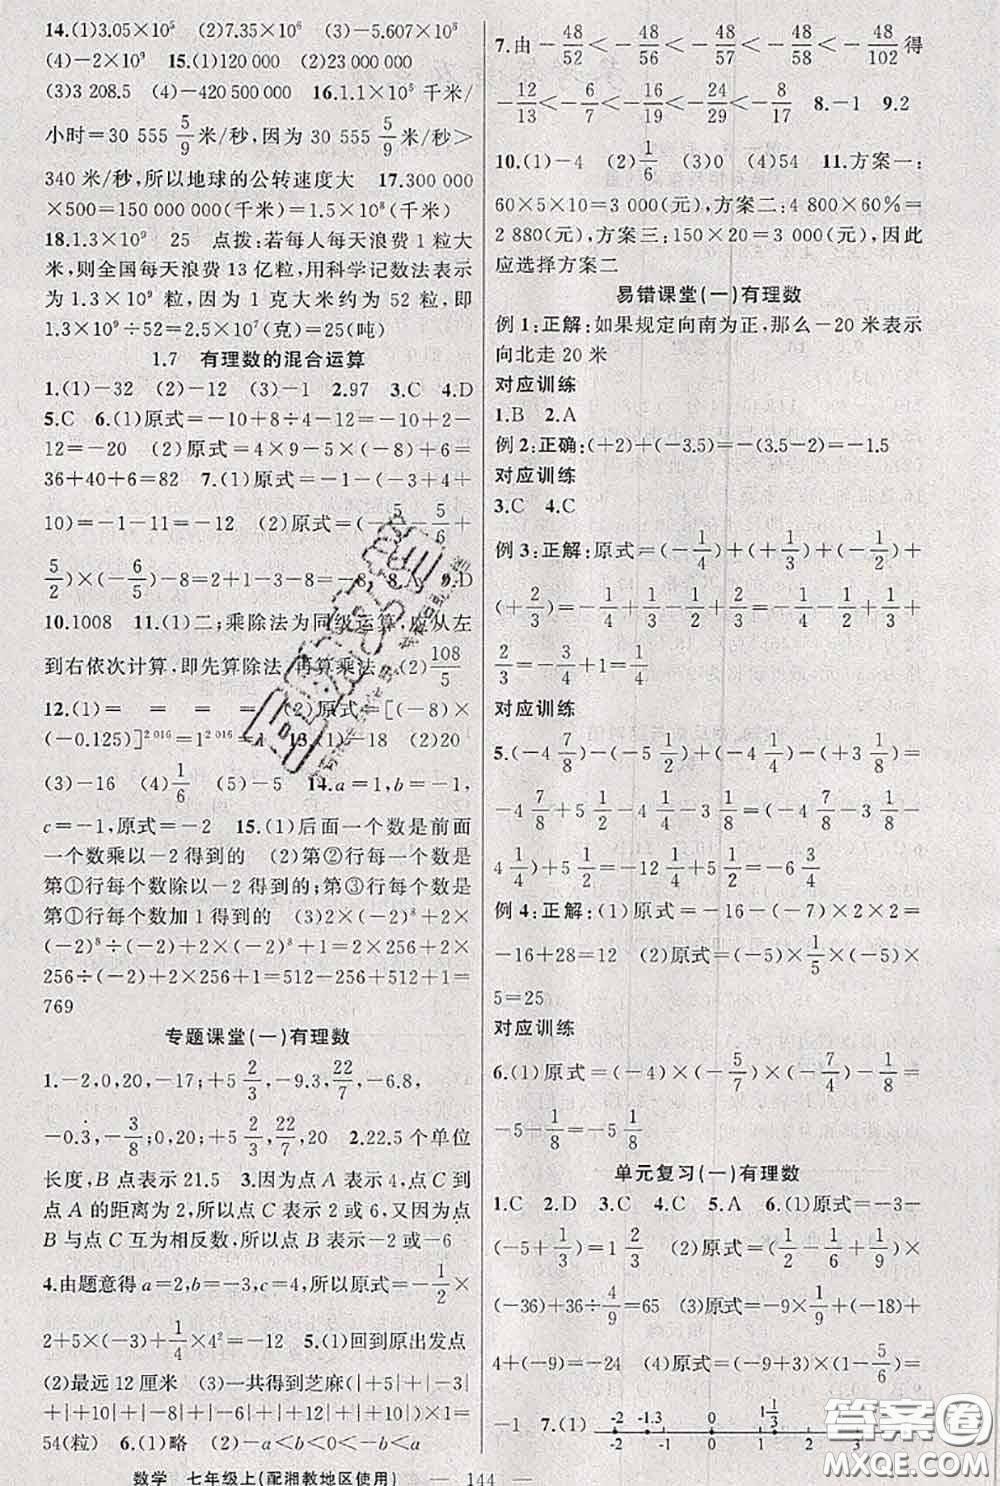 14.(1)3.05×10⁵ (2)7.35×10⁶ (3)-5.607×10³
(4)-2×10⁹ 15.(1)120 000 (2)23 000 000
(3)3 208.5 (4)-420 500 000 16.1.1×10⁵ 千米/
小时=30 555 5/9 米/秒,因为 30 555 5/9 米/秒>
340 米/秒,所以地球的公转速度大 17.300 000
×500=150 000 000(千米)=1.5×10⁸(千米)
18.1.3×10⁹ 25 点拨:若每人每天浪费 1 粒大
米,则全国每天浪费 13 亿粒,用科学记数法表示
为 1.3×10⁹ 粒,因为 1 克大米约为 52 粒,即
1.3×10⁹÷52=2.5×10⁷(克)=25(吨)
1.7 有理数的混合运算
1.(1)-32 (2)-12 (3)-1 2.97 3.C 4.D
5.C 6.(1)原式=-10+8÷4-12=-10+2-
12=-20 (2)原式=4×9-5×(-8)+6=
36+40+6=82 7.(1)原式=-1-(-3+4+
10)=-1-11=-12 (2)原式=(- -5/6+
5/2)×(-6/5)-8=2+1-3-8=-8 8.A 9.D
10.1008 11.(1)二;乘除法为同级运算,应从左
到右依次计算,即先算除法,再算乘法 (2)108/5
12.(1)= = = = (2)原式=[(-8)×
(-0.125)]²⁰¹⁶=1²⁰¹⁶=1 13.(1)-18 (2)20
(3)-16 (4)1/6 (5)-5 14.a=1,b=-1,
c=-1,原式=-2 15.(1)后面一个数是前面
一个数乘以-2得到的 (2)第②行每一个数是
第①行每个数除以-2得到的;第③行每个数是
第①行每个数加1得到的 (3)2×(-2)⁸+2×
(-2)⁸÷(-2)+2×(-2)⁸+1=2×256+2×
256÷(-2)+2×256+1=512-256+512+1=
769
专题课堂(一)有理数
1.-2,0,20,-17;+5 2/3,-9.3,22/7,-6.8,
-0.3̇,-3/8;0,20;+5 2/3,22/7,20 2.22.5 个单位
长度,B 点表示 21.5 3.因为点 A 表示 4,点 C 到
点 A 的距离为 2,所以点 C 表示 2 或 6,又因为点
B 与点 C 互为相反数,所以点 B 表示-2 或-6
4.由题意得 a=2,b=-3,c=4,所以原式=-1/2×
2+5×(-3)+1/4×4²=-12 5.(1)回到原出发点
(2)最远 12 厘米 (3)一共得到芝麻(|+5|+|-3|
+|+10|+|-8|+|-6|+|+12|+|-10|)×1=
54(粒) 6.(1)略 (2)-a<b<0<-b<a
7.由-48/52<-48/56<-48/57<-48/58<-48/102 得
-12/13<-6/7<-16/19<-24/29<-8/17 8.-1 9.2
10.(1)-4 (2)1/6 (3)0 (4)54 11.方案一:
60×5×10=3 000(元),方案二:4 800×60%=
2 880(元),方案三:150×20=3 000(元),因此
应选择方案二
易错课堂(一)有理数
例 1:正解:如果规定向南为正,那么-20 米表示
向北走 20 米
对应训练
1.B 2.A
例 2:正确:(+2)+(-3.5)=-(3.5-2)=-1.5
对应训练
3.C 4.C
例 3:正解:原式=(-1/4)+(+1/3)+(-1)+
(+2/3)=-1/4+1/3-1+2/3=-1/4-1+1/3+
2/3=-3/4... 
对应训练
5.(-4 7/8)-(-5 1/2)+(-4 1/4)-(+3 1/8)=
-4 7/8+5 1/2-4 1/4-3 1/8=(-4 7/8-3 1/8-
4 1/4)+5 1/2=-12 1/4+5 1/2=-6 3/4
例 4:正解:(1)原式=-16-(-7)×2×2=
-16+28=12 (2)原式=(-5)×1/5×(-5)×
5=25
对应训练
6.(1)原式=(-4)×(-5/7)×(-7/4)-1/8=
-5-1/8=-5 1/8
单元复习(一)有理数
1.C 2.D 3.C 4.C 5.A 6.(1)原式=-3-
(-5+1/3)=1 2/3 (2)原式=(1/2-1/6+1/9)×
(-36)+36÷4/9=65 (3)原式=-9×1/9+(-18)+
4+(-9)=-24 (4)原式=(-9+3)×(1-5/6)=
-1 7.(1) -2 -1.3 0 1 1/3
-2 -1 0 1 2 3
数学 七年级上(配湘教地区使用) — 144 —
答案圈
MXQE.COM